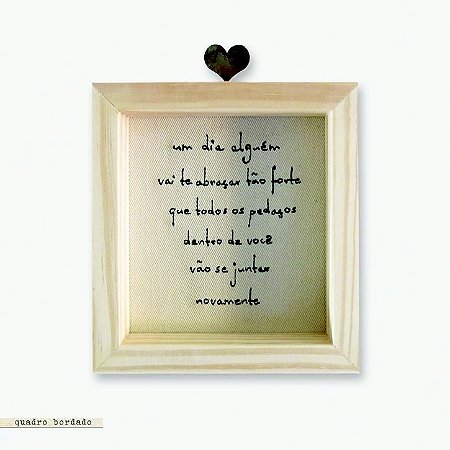 um dia alguém
vai te abraçar tão forte
que todos os pedaços
dentro de você
vão se juntar
novamente
quadro bordado